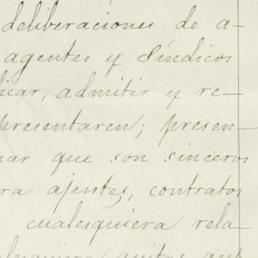 deliberaciones de a-
agentes y Síndicos
icar, admitir y re-
presentaren; presen-
uar que son sinceros
ra ajentes, contratos
cualesquiera rela-